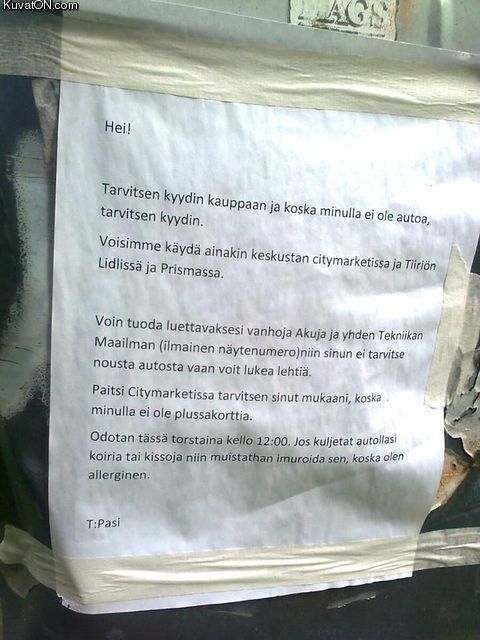 KuvatON.com
AGS
Hei!
Tarvitsen kyydin kauppaan ja koska minulla ei ole autoa,
tarvitsen kyydin.
Voisimme käydä ainakin keskustan citymarketissa ja Tiiriön
Lidlissä ja Prismassa.
Voin tuoda luettavaksesi vanhoja Akuja ja yhden Tekniikan
Maailman (ilmainen näytenumero)niin sinun ei tarvitse
nousta autosta vaan voit lukea lehtiä.
Paitsi Citymarketissa tarvitsen sinut mukaani, koska
minulla ei ole plussakorttia.
Odotan tässä torstaina kello 12:00. Jos kuljetat autollasi
koiria tai kissoja niin muistathan imuroida sen, koska olen
allerginen.
T:Pasi